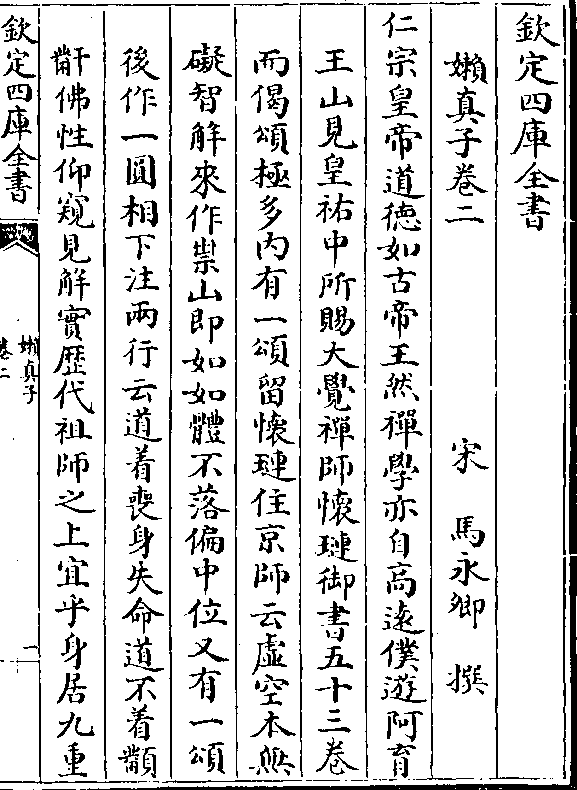 欽定四庫全書
嬾真子卷二
宋　馬永卿　撰
仁宗皇帝道德如古帝王然禪學亦自髙逺僕遊阿育
王山見皇祐中所賜大覺禪師懷璉御書五十三卷
而偈頌極多内有一頌留懷璉住京師云虚空本無
礙智解來作祟山即如如體不落偏中位又有一頌
後作一圓相下注兩行云道着喪身失命道不着顢
佛性仰窺見解實歴代祖師之上宜乎身居九重
欽定四庫全書
嬾真子
卷二
二